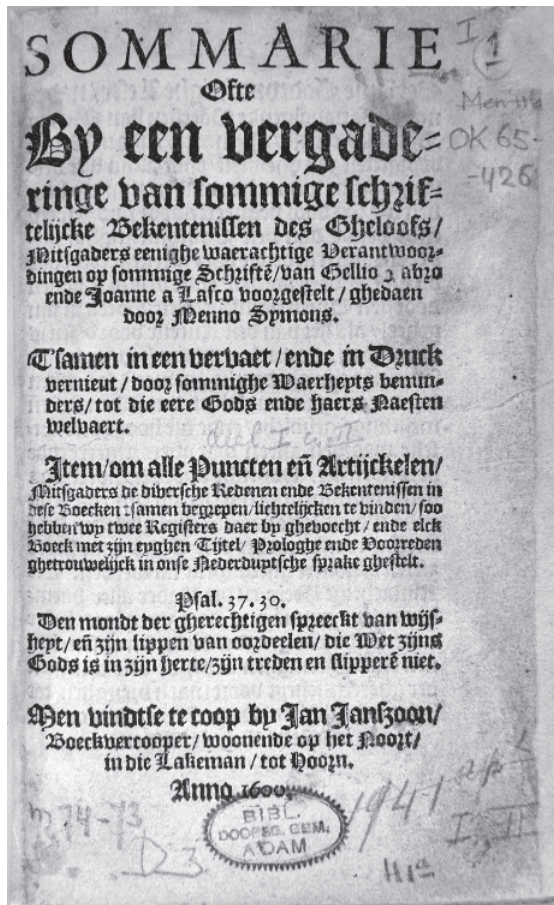 SOMMARIE
Ofte
By een vergade=
ringe van sommige schrif=
telijcke Bekentenissen des Gheloofs/
Mitsgaders eenighe waerachtige Verantwoor=
dingen op sommige Schriftẽ/van Gellio Fabro
ende Joanne a Lasco voorgestelt/ghedaen
door Menno Symons.
T'samen in een vervaet/ende in Druck
vernieut/door sommighe Waerheyts bemin=
ders/tot die eere Gods ende haers Naesten
welvaert.
deel I en II
Item/om alle Puncten eñ Artijckelen/
Mitsgaders de diversche Redenen ende Bekentenissen in
dese Boecken tsamen begrepen/lichtelijcken te vinden/soo
hebben wy twee Registers daer by ghevoecht/ende elck
Boeck met zijn eyghen Tijtel/Prologhe ende Voorreden
ghetrouwelijck in onse Nederduytsche sprake ghestelt.
Psal. 37. 30.
Den mondt der gherechtigen spreeckt van wijs=
heyt/eñ zijn lippen van oordeelen/die Wet zijns
Gods is in zijn herte/zijn treden en slipperẽ niet.
Men vindtse te coop by Jan Janszoon/
Boeckvercooper/woonende op het Noort/
in die Lakeman/tot Hoorn.
Anno 1600.
BIBL.
DOOPSG. GEM.
ADAM
I 1
OK 65-
-426
74-73
D3
1941
I, II